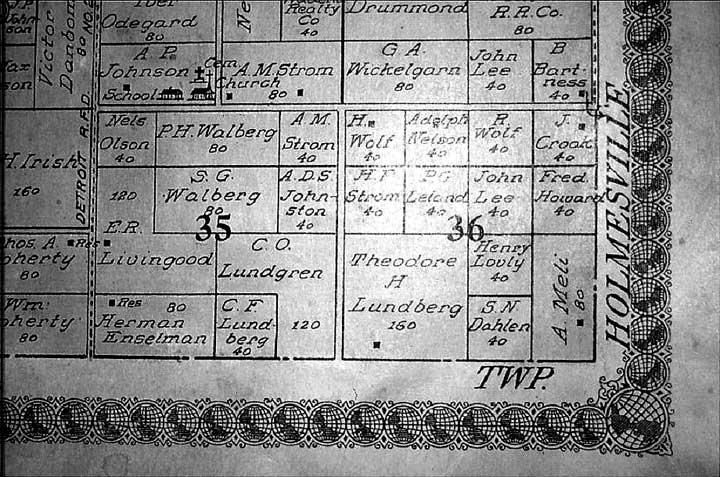 J.P.
John-
son
Victor
Danbom
80
NO.
Iber
Odegard
80
Ne
Realty
Co
40
Drummond
R.R.Co.
80
son
A. P.
Johnson
School
Cem.
Church
A.M.Strom
80
G. A.
Wickelgarn
80
John
Lee
40
B
Bart-
ness
40
DETROIT R.F.D.
H.Irish
160
Nels
Olson
40
P.H.Walberg
80
A M.
Strom
40
H.
Wolf
40
Adolph
Nelson
40
R.
Wolf
40
J.
Crook
40
120
E.R.
Livingood
S. G.
Walberg
80
A.D.S.
John-
ston
40
H.F.
Strom
40
P.G
Leland
40
John
Lee
40
Fred.
Howard
40
35
36
hos. A.
oherty
80
Res
C. O.
Lundgren
120
Theodore
H
Lundberg
160
Henry
Lovly
40
A. Meli
80
Wm.
oherty
80
Res
80
Herman
Enselman
C. F.
Lund-
berg
40
S.N.
Dahlen
40
HOLMESVILLE
TWP.